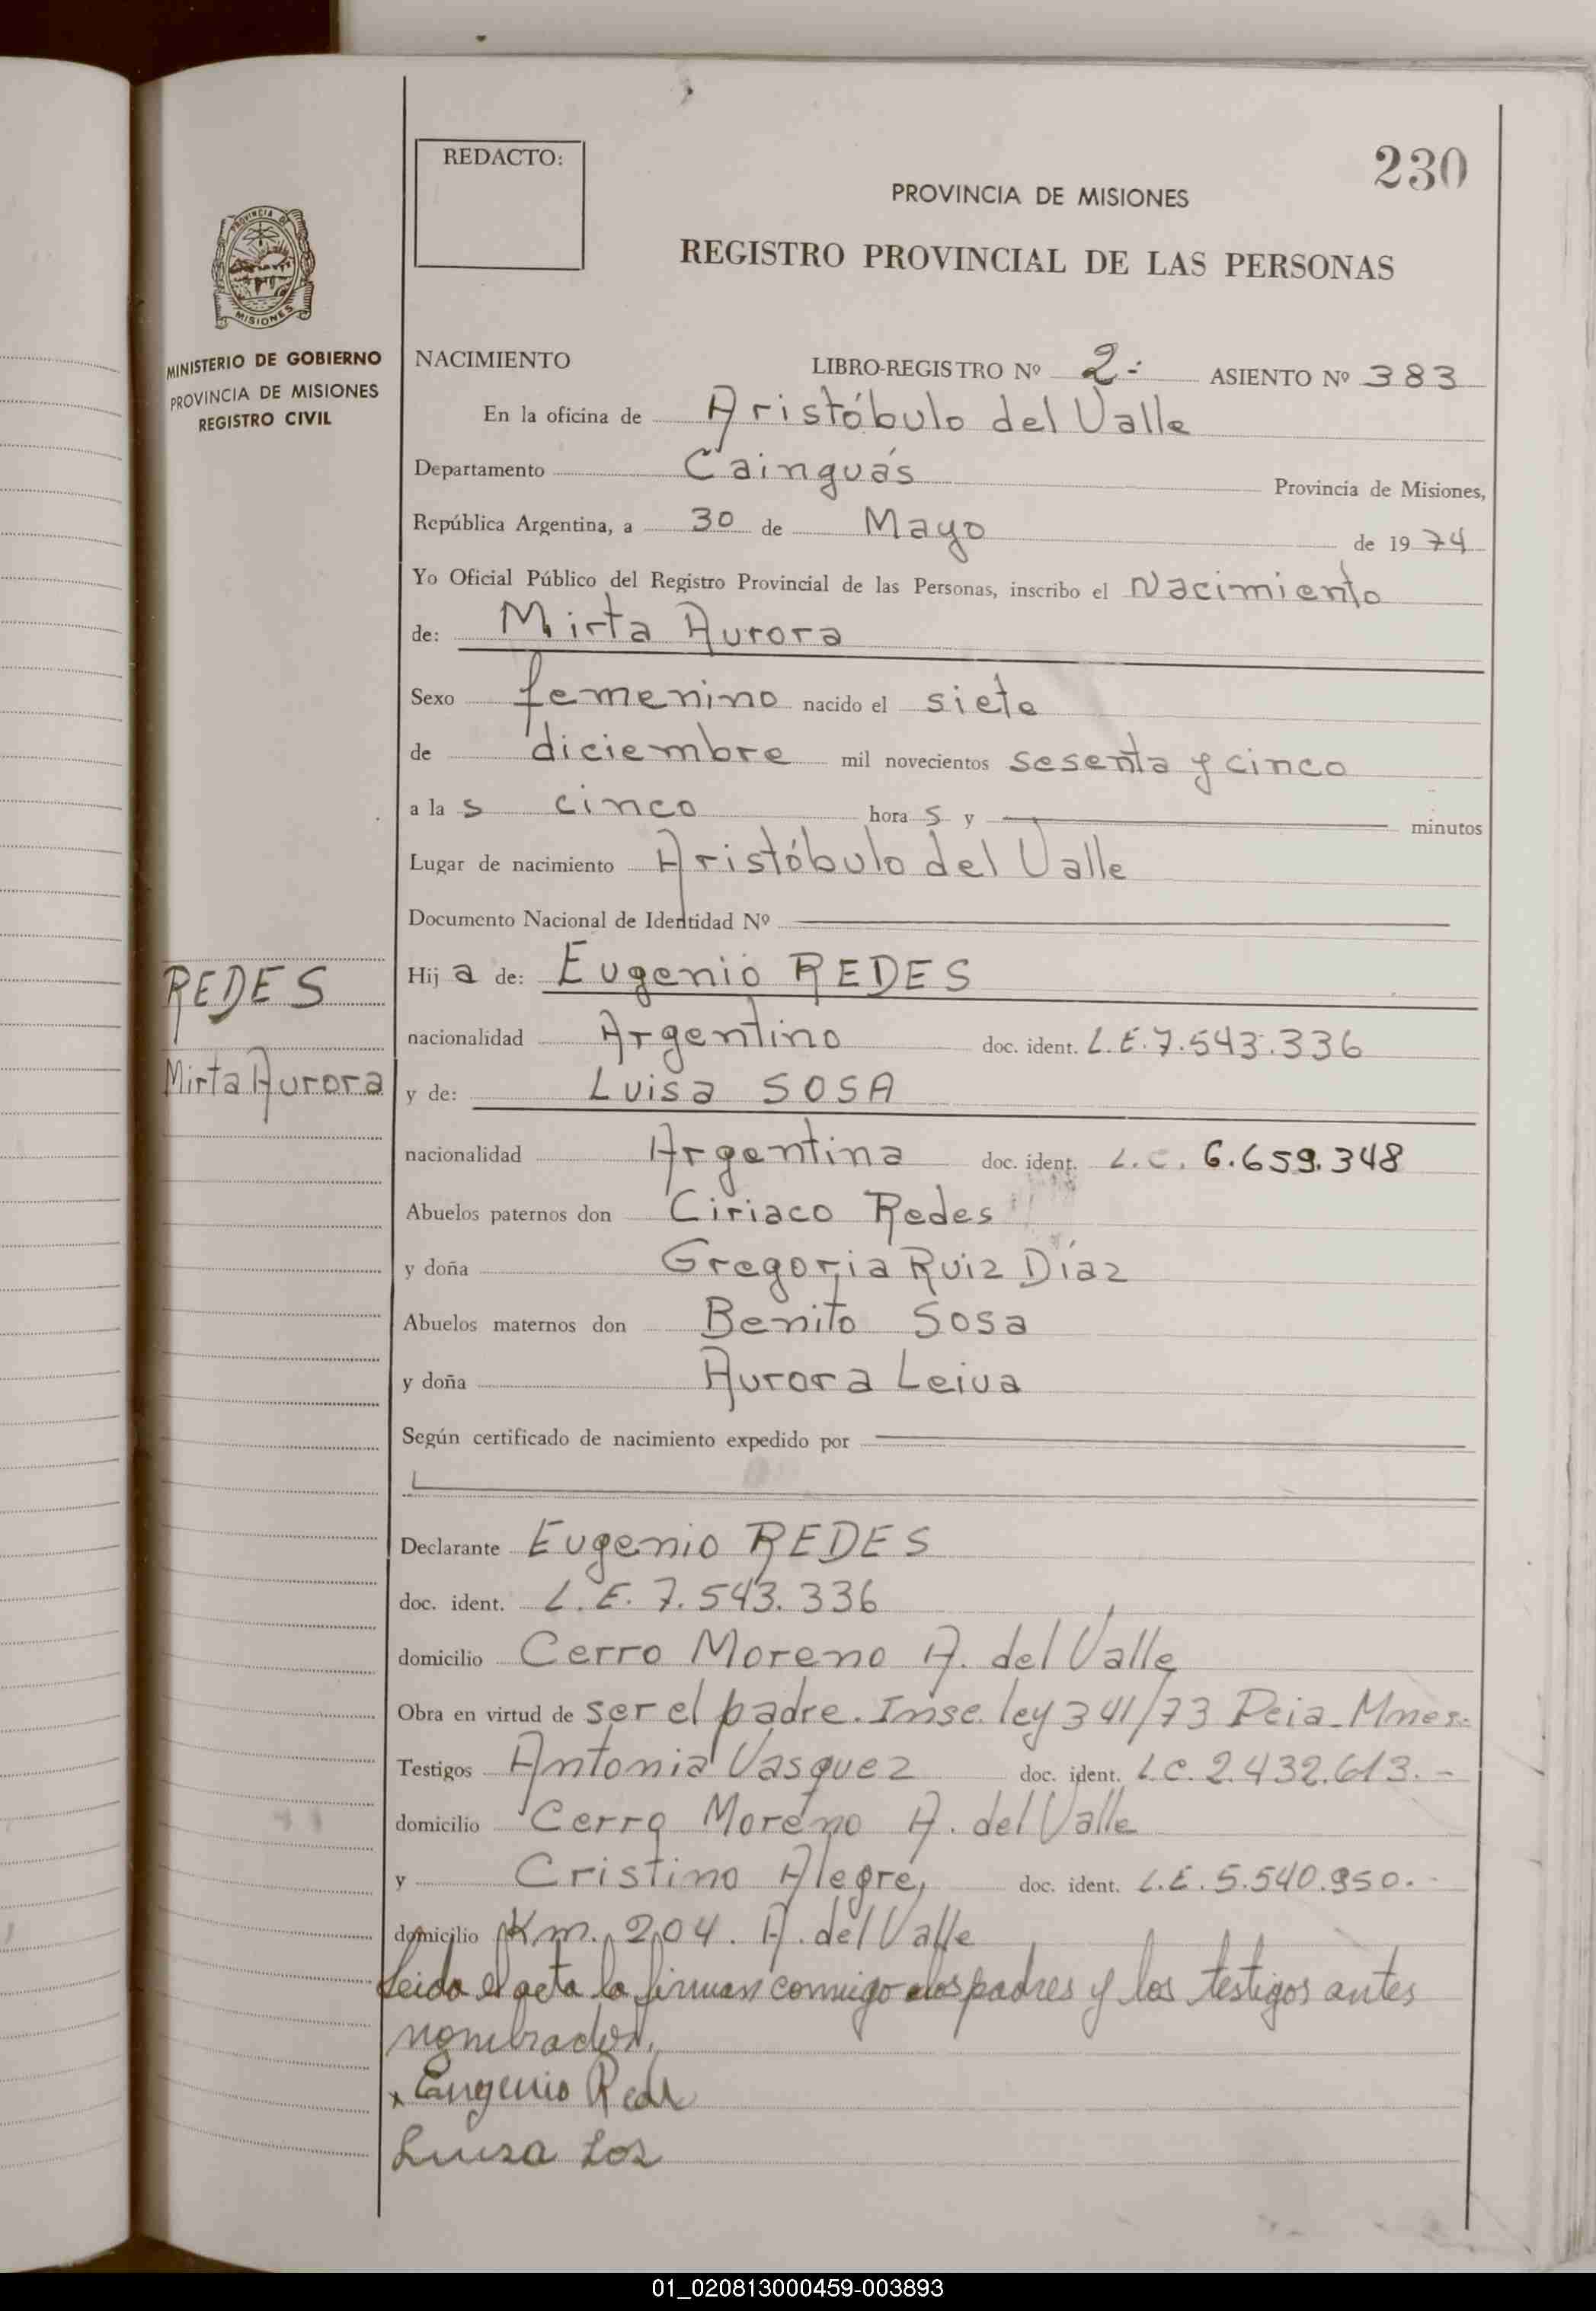 REDACTO:
230
PROVINCIA DE MISIONES
REGISTRO PROVINCIAL DE LAS PERSONAS
PROVINCIA DE
MISIONES
MINISTERIO DE GOBIERNO
PROVINCIA DE MISIONES
REGISTRO CIVIL
NACIMIENTO LIBRO-REGISTRO Nº 2- ASIENTO Nº 383
En la oficina de Aristóbulo del Valle
Departamento Cainguás Provincia de Misiones,
República Argentina, a 30 de Mayo de 1974
Yo Oficial Público del Registro Provincial de las Personas, inscribo el Nacimiento
de: Mirta Aurora
Sexo femenino nacido el siete
de diciembre mil novecientos sesenta y cinco
a las cinco horas y minutos
Lugar de nacimiento Aristóbulo del Valle
Documento Nacional de Identidad Nº
REDES
Mirta Aurora
Hija de: Eugenio REDES
nacionalidad Argentino doc. ident. L.E. 7.543.336
y de: Luisa SOSA
nacionalidad Argentina doc. ident. L.C. 6.659.348
Abuelos paternos don Ciriaco Redes
y doña Gregoria Ruiz Díaz
Abuelos maternos don Benito Sosa
y doña Aurora Leiva
Según certificado de nacimiento expedido por
Declarante Eugenio REDES
doc. ident. L.E. 7.543.336
domicilio Cerro Moreno A. del Valle
Obra en virtud de ser el padre. Insc. ley 341/73 Pcia. Mnes.
Testigos Antonia Vasquez doc. ident. L.C. 2.432.613.-
domicilio Cerro Moreno A. del Valle
y Cristino Alegre, doc. ident. L.E. 5.540.950.-
domicilio Km. 204. A. del Valle
Leida el acta la firman conmigo los padres y los testigos antes
nombrados.
x Eugenio Red
Luisa Sos
01_020813000459-003893